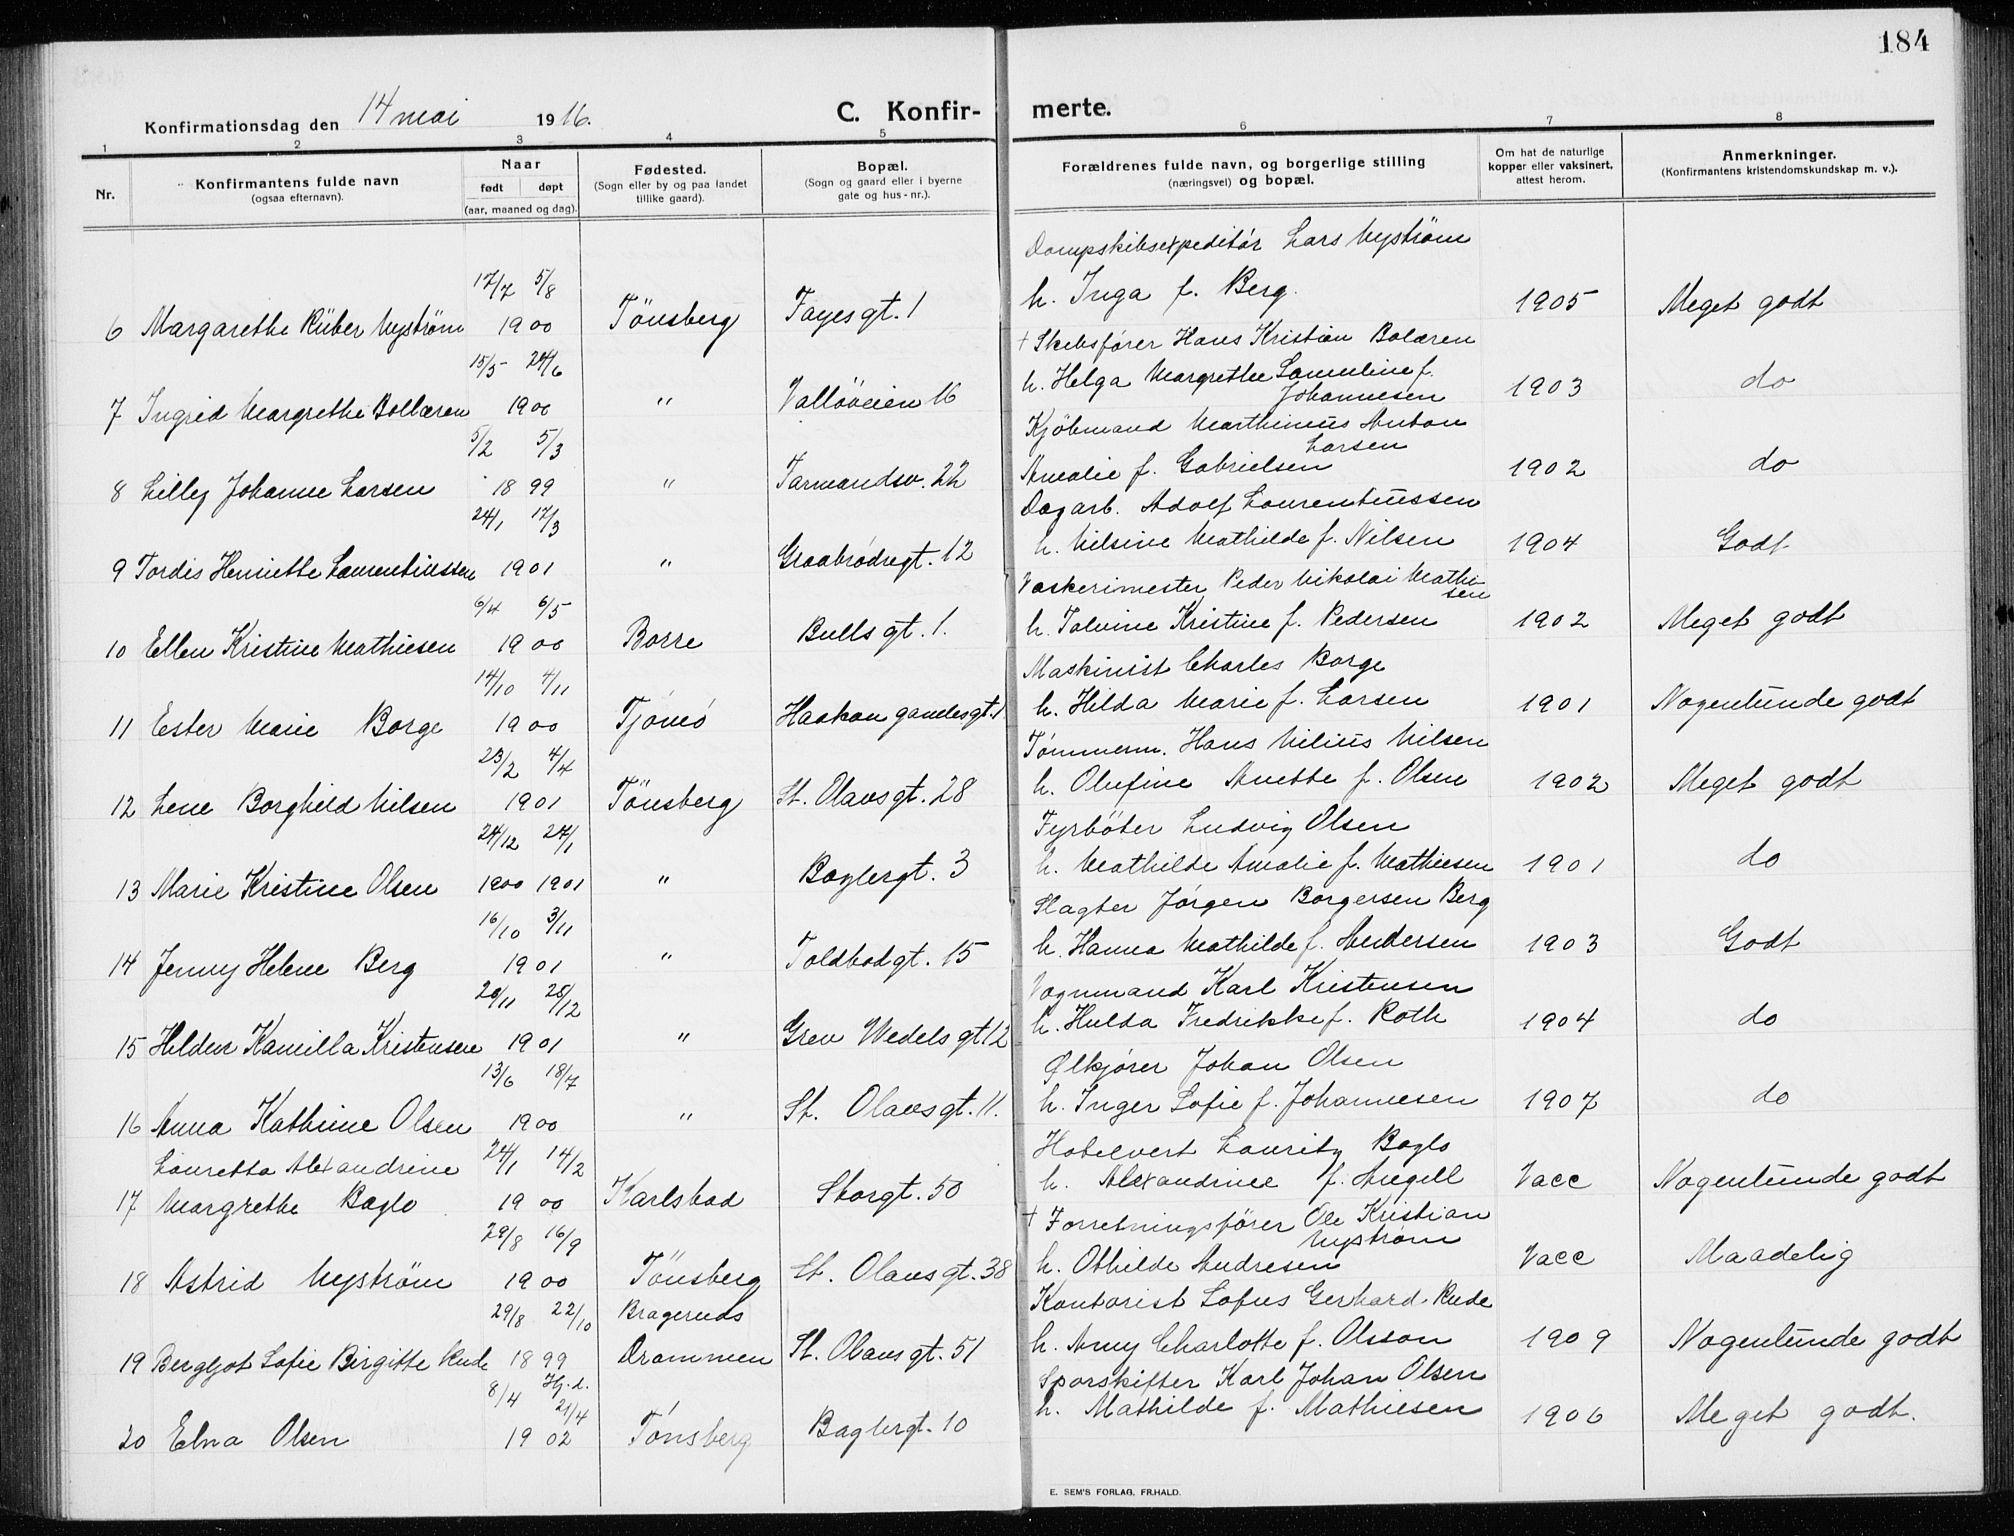 184
Konfirmationsdag den 14 mai 1916.
C. Konfir-
merte.
1 2 3 4 5 6 7 8
Nr.
Konfirmantens fulde navn
(ogsaa efternavn).
Naar
født døpt
(aar, maaned og dag).
Fødested.
(Sogn eller by og paa landet
tillike gaard).
Bopæl.
(Sogn og gaard eller i byerne
gate og hus-nr.).
Forældrenes fulde navn, og borgerlige stilling
(næringsvei) og bopæl.
Om hat de naturlige
kopper eller vaksinert,
attest herom.
Anmerkninger.
(Konfirmantens kristendomskundskap m. v.).
Dampskibsexpeditør Lars Nystrøm
17/7 5/8
h. Inga f. Berg.
6 Margarethe Rüber Nystrøm 1900 Tönsberg Fayesgt. 1 1905 Meget godt
+ Skibsfører Hans Kristian Bolæren
15/5 24/6
h. Helga Margrethe Samuline f.
Johannesen
7 Ingrid Margrethe Bollæren 1900 " Vallöveien 16 1903 do
Kjöbmand Marthinius Anton
Larsen
5/2 5/3
Amalie f. Gabrielsen
8 Lilly Johanne Larsen 1899 " Farmandsv. 22 1902 do
Dagarb. Adolf Laurentiussen
24/1 17/3
h. Nilsine Mathilde f. Nilsen
9 Tordis Henriette Laurentiussen 1901 " Graabrødregt. 12 1904 Godt
Vaskerimester Peder Nikolai Mathi-
sen
6/4 6/5
h. Talvine Kristine f. Pedersen
10 Ellen Kristine Mathiesen 1900 Borre Bulls gt. 1. 1902 Meget godt
Maskinist Charles Borge
14/10 4/11
h. Hilda Marie f. Larsen
11 Ester Marie Borge 1900 Tjømø Haakon gamlesgt. 1 1901 Nogenlunde godt
Tømmerm. Hans Nilius Nilsen
23/2 4/4
h. Olufine Anette f. Olsen
12 Lene Borghild Nilsen 1901 Tönsberg St. Olavsgt. 28 1902 Meget godt
Fyrbøter Ludvig Olsen
24/12 24/1
h. Mathilde Amalie f. Mathiesen
13 Marie Kristine Olsen 1900 1901 " Baglergt. 3 1901 do
Slagter Jørgen Borgersen Berg
16/10 3/11
h. Hanna Mathilde f. Andersen
14 Jenny Helene Berg 1901 " Toldbodgt. 15 1903 Godt
Vognmand Karl Kristensen
20/11 25/12
h. Hulda Fredrikke f. Roth
15 Hildur Kamilla Kristensen 1901 " Grev Wedels gt 12 1904 do
Ølkjører Johan Olsen
13/6 18/7
h. Inger Sofie f. Johannesen
16 Anna Kathrine Olsen 1900 " St. Olavsgt. 11. 1907 do
Hotelvert Lauritz Baglo
Lauretta Alexandrine 24/1 14/2
h. Alexandrine f. Angell
17 Margrethe Baglo 1900 Karlstad Storgt. 50 Vacc Nogenlunde godt
+ Forretningsfører Ole Kristian
Nystrøm
29/8 16/9
h. Othilde Andresen
18 Astrid Nystrøm 1900 Tönsberg St. Olavsgt. 38 Vacc Maadelig
Kontorist Sofus Gerhard Rude
29/8 22/10 Bragernds
h. Amy Charlotte f. Olsson
19 Bergljot Sofie Birgitte Rude 1899 Drammen St. Olavsgt. 51 1909 Nogenlunde godt
Sporskifter Karl Johan Olsen
8/4 Hj. d. 21/4
h. Mathilde f. Mathiesen
20 Elna Olsen 1902 Tönsberg Baglergt. 10 1906 Meget godt.
E. SEM'S FORLAG, FR.HALD.